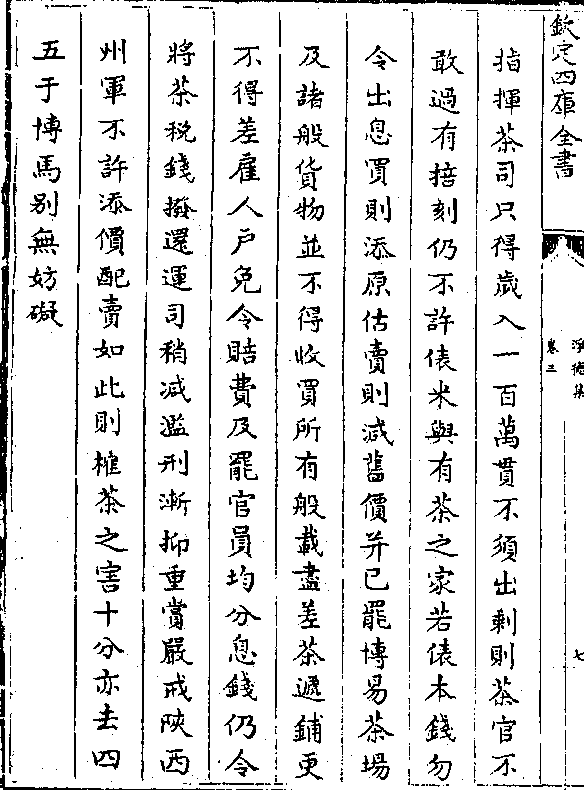 欽定四庫全書
淨德集
卷三
七
指揮茶司只得歲入一百萬貫不須出剩則茶官不
敢過有掊刻仍不許俵米與有茶之家若俵本錢勿
令出息買則添原估賣則減舊價并已罷博易茶場
及諸般貨物並不得收買所有般載盡差茶遞鋪更
不得差雇人戶免令賠費及罷官員均分息錢仍令
將茶稅錢撥還運司稍減濫刑漸抑重賞嚴戒陜西
州軍不許添價配賣如此則榷茶之害十分亦去四
五于博馬別無妨礙